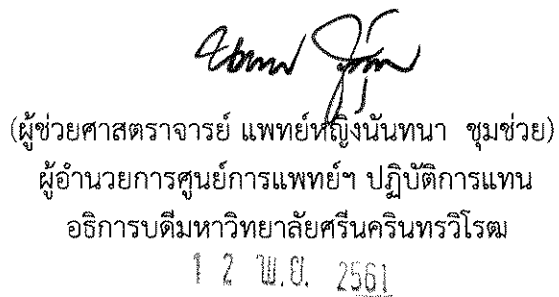 (ผู้ช่วยศาสตราจารย์ แพทย์หญิงนันทนา ชุมช่วย)
ผู้อำนวยการศูนย์การแพทย์ฯ ปฏิบัติการแทน
อธิการบดีมหาวิทยาลัยศรีนครินทรวิโรฒ
1 2 พ.ย. 2561